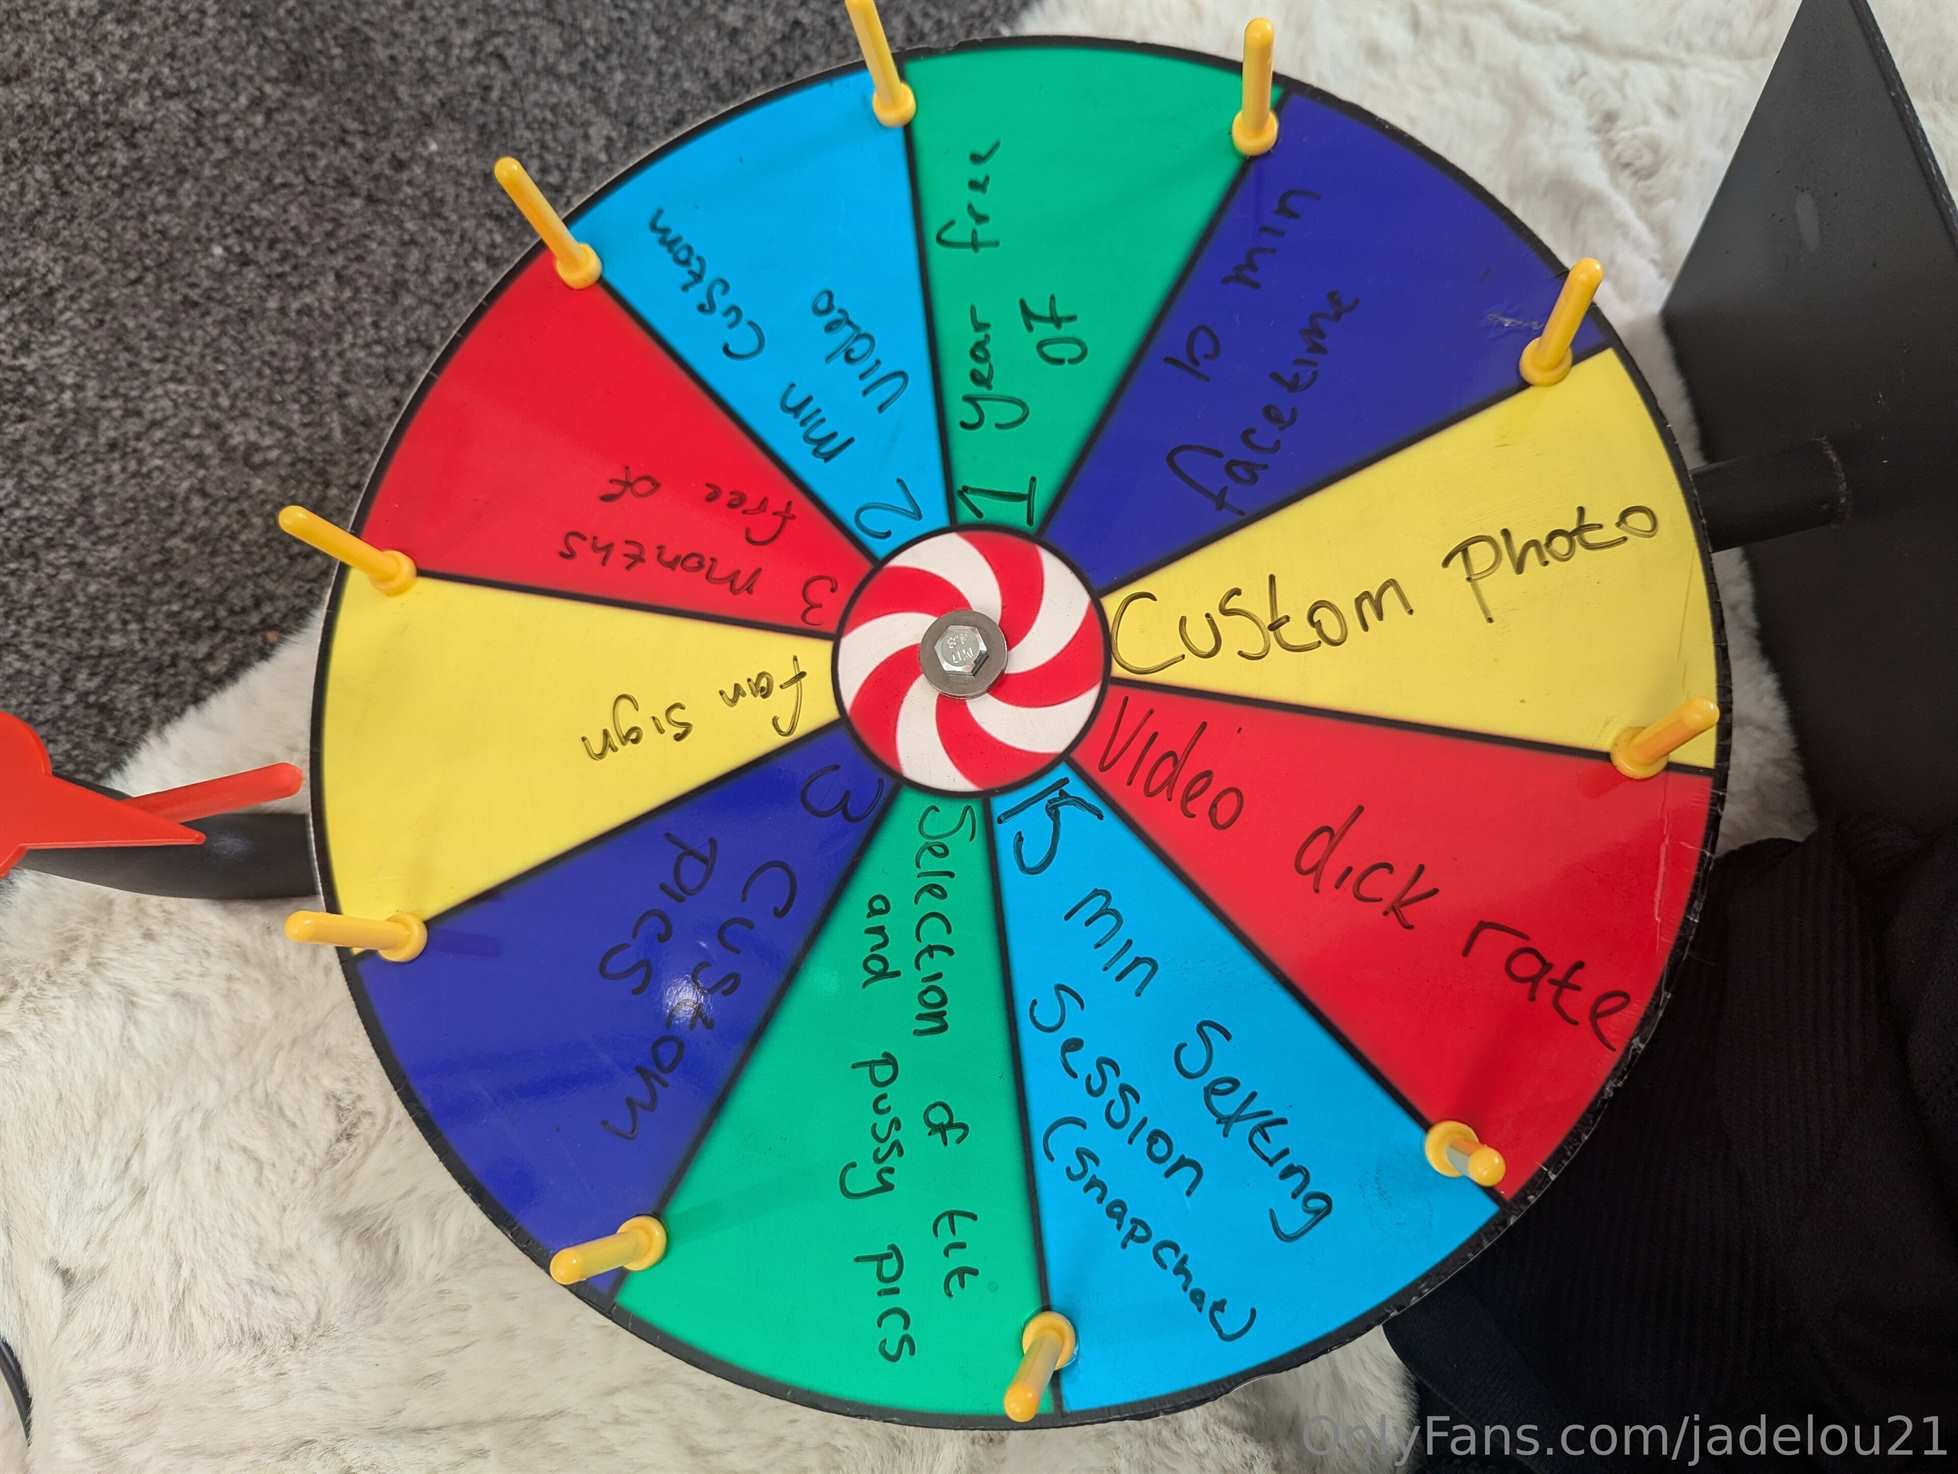 1 year free
OF
10 min
facetime
Custom Photo
Video dick rate
15 min Sexting
Session
(snapchat)
Selection of tit
and pussy pics
3 Custom
pics
fan sign
3 months
free of
2 min Custom
Video
OnlyFans.com/jadelou21